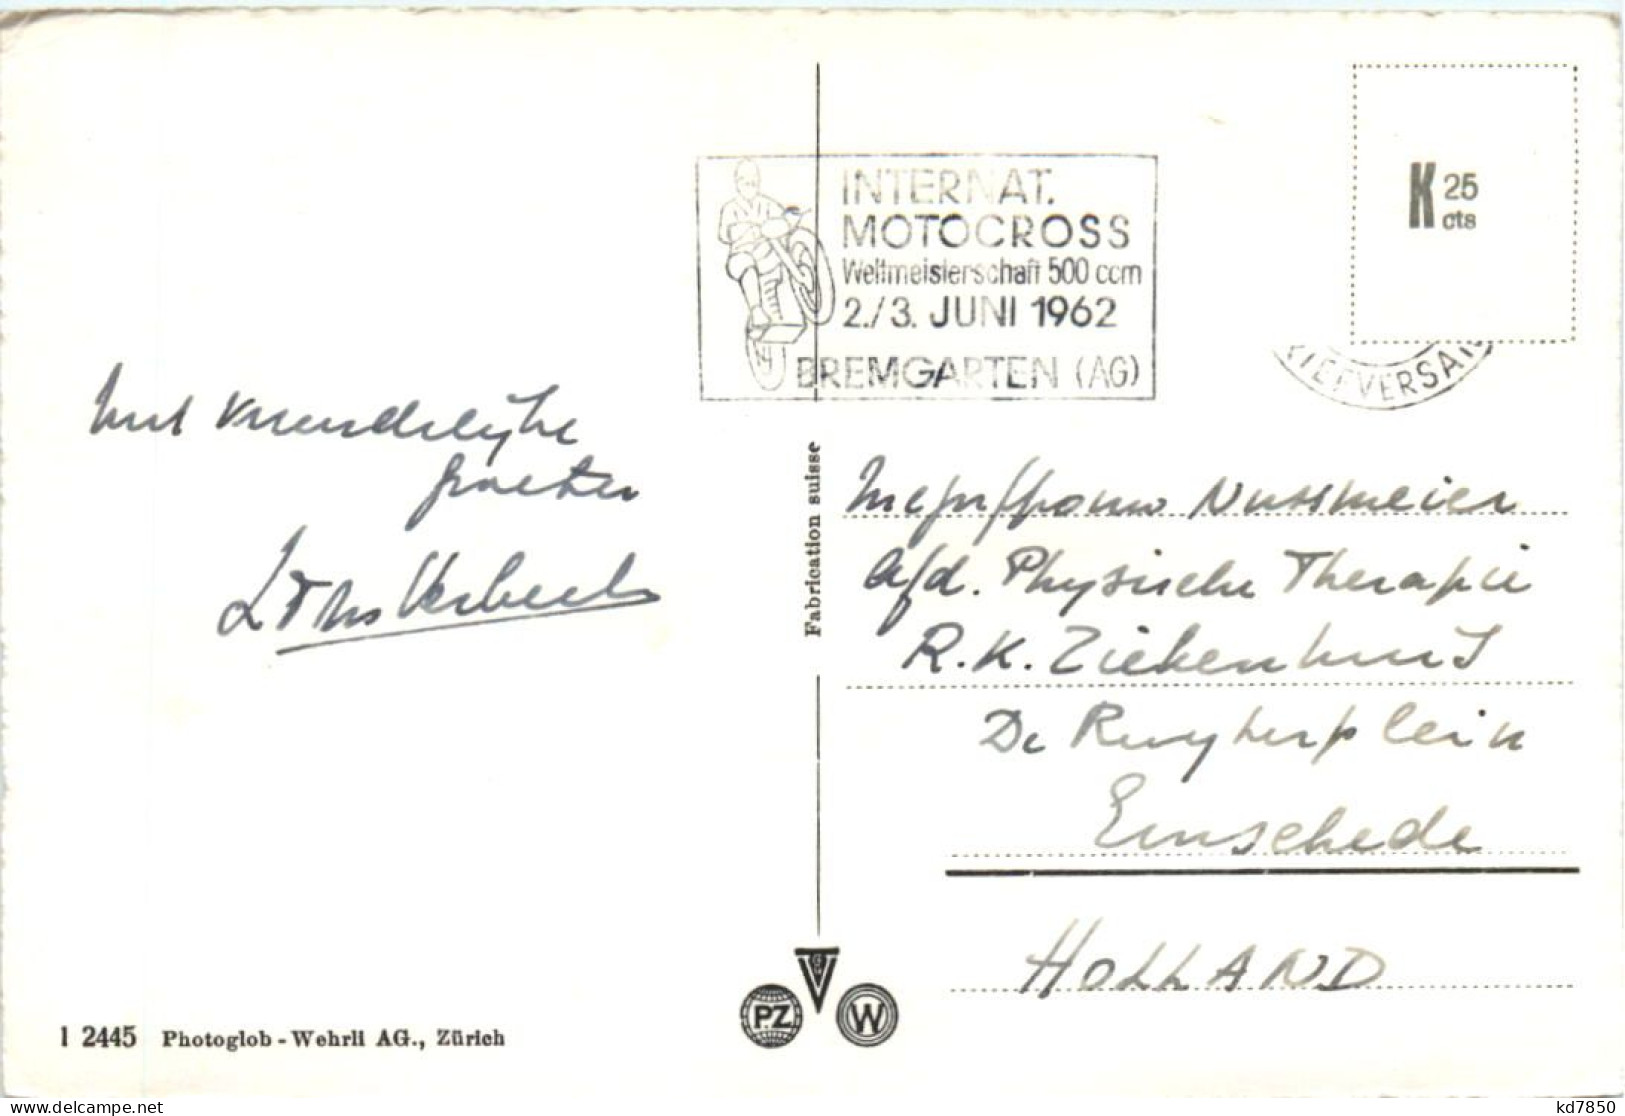 K 25
cts
INTERNAT.
MOTOCROSS
Weltmeisterschaft 500 ccm
2./3. JUNI 1962
BREMGARTEN (AG)
BRIEFVERSAND
Met vriendelijke
groeten
Verbeek
Fabrication suisse
Mejuffrouw Nussmeier
afd. Physische Therapie
R.K. Ziekenhuis
De Ruyterplein
Enschede
HOLLAND
PZ
W
1 2445 Photoglob-Wehrli AG., Zürich
kd7850